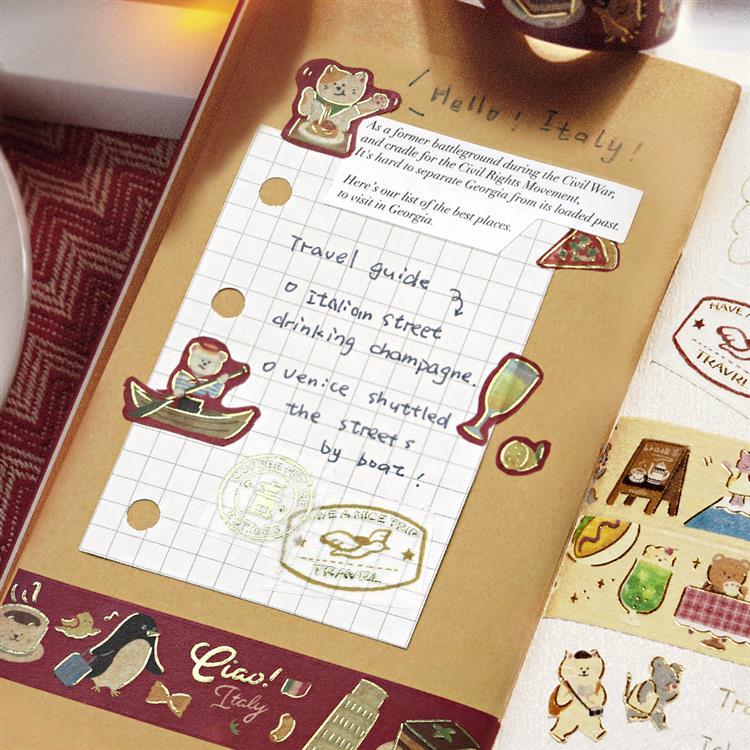 Hello! Italy!
As a former battleground during the Civil War,
and cradle for the Civil Rights Movement,
It's hard to separate Georgia from its loaded past.
Here's our list of the best places.
to visit in Georgia.
Travel guide
o Italian street
drinking champagne.
o Venice shuttled
the streets
by boat!
HAVE A NICE TRIP
TRAVEL
Ciao!
Italy
HAVE A
TRAVEL